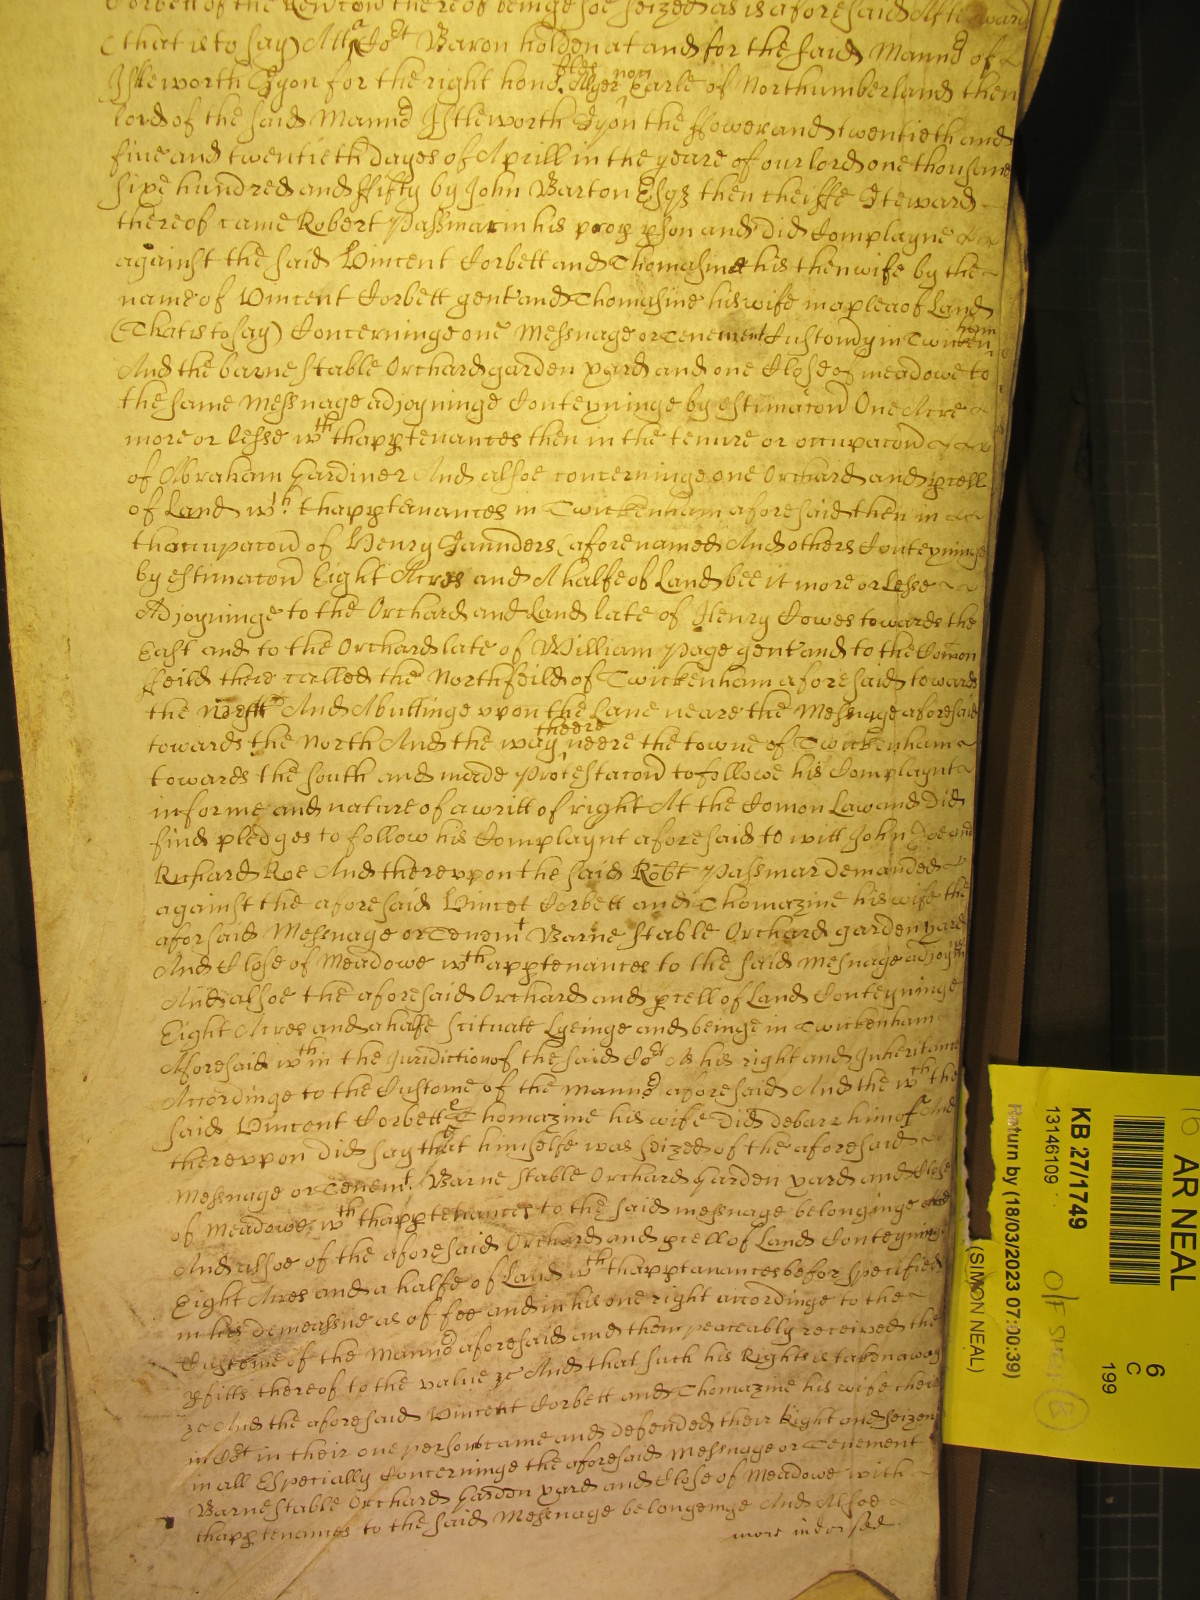 Corbett of the Revercon thereof beinge soe seized as is aforesaid Afterward
(that is to say) Att a Cort Baron holden at and for the said Mannor of
Istleworth Syon for the right honoble Alger non Earle of Northumberland then
lord of the said Mannor Istleworth Syon the ffower and twentieth and
five and twentieth dayes of Aprill in the yeare of our lord one thousand
sixe hundred and ffifty by John Barton Esqr then cheiffe Steward
thereof came Robert Passmar in his propp pson and did Complayne
against the said Vincent Corbett and Thomasine his then wife by the
name of Vincent Corbett gent and Thomasine his wife in a plea of Land
(That is to say) Concerninge one Messuage or Tenement Customary in Twickenham
And the barne stable Orchard garden yard and one Close of meadowe to
the same Messuage adjoyninge Conteyninge by estimacon One Acre
more or lesse wth thapptenances then in the tenure or occupacon
of Abraham Gardiner And alsoe concerninge one Orchard and pcell
of Land wth thapptenances in Twickenham aforesaid then in
thoccupacon of Henry Saunders (aforenamed) And others Conteyninge
by estimacon Eight Acres and A halfe of Land bee it more or Lesse
Adjoyninge to the Orchard and Land late of Henry Cowes towards the
East and to the Orchard late of William Page gent and to the Comon
ffeild there called the Northfeild of Twickenham aforesaid towards
the North And Abuttinge upon the Lane neare the Messuage aforesaid
towards the North And the way theere neere the towne of Twickenham
towards the South and made Protestacon to followe his Complaynt
in forme and nature of a writt of right At the Comon Law and did
find pledges to follow his Complaynt aforesaid to witt John Doe and
Richard Roe And thereupon the said Robt Passmar demanded
against the aforesaid Vincet Corbett and Thomazine his wife the
aforsaid Messuage or Tenemt Barne Stable Orchard garden yard
And Close of Meadowe wth apptenances to the said Mesuage adjoyninge
And alsoe the aforesaid Orchard and pcell of Land Conteyninge
Eight Acres and a halfe Scituate Lyeinge and beinge in Twickenham
Aforesaid wth in the Jurisdiction of the said Cort As his right and Inheritance
Accordinge to the Custome of the Mannor aforesaid And the wch the
said Vincent Corbett & Thomazine his wife did debarr him of And
thereupon did say that himselfe was seized of the aforesaid
Messuage or Tenemt. Barne Stable Orchard Garden yard and Close
of Meadowe wth thapptenances to the said messuage belonginge and
And alsoe of the aforesaid Orchard and pcell of Land Conteyninge
Eight Acres and a halfe of Land wth thapptenances befor specified
in his demeasne as of fee and in his one right accordinge to the
Custome of the Mannor aforesaid and then peaceably received the
pfitts thereof to the value &c And that such his Right is taken away
&c And the aforesaid Vincent Corbett and Thomazine his wife there
in Cort in their one persons came and defended their Right and seizen
in all Especially Concerninge the aforesaid Messuage or Tenement
Barne Stable Orchard Garden yard and Close of Meadowe with
thapptenances to the said Messuage belongeinge And Alsoe
more indorsed.
AR NEAL
6
C
199
KB 27/1749
13146109
Return by (18/03/2023 07:00:39)
(SIMON NEAL)
O/F
B